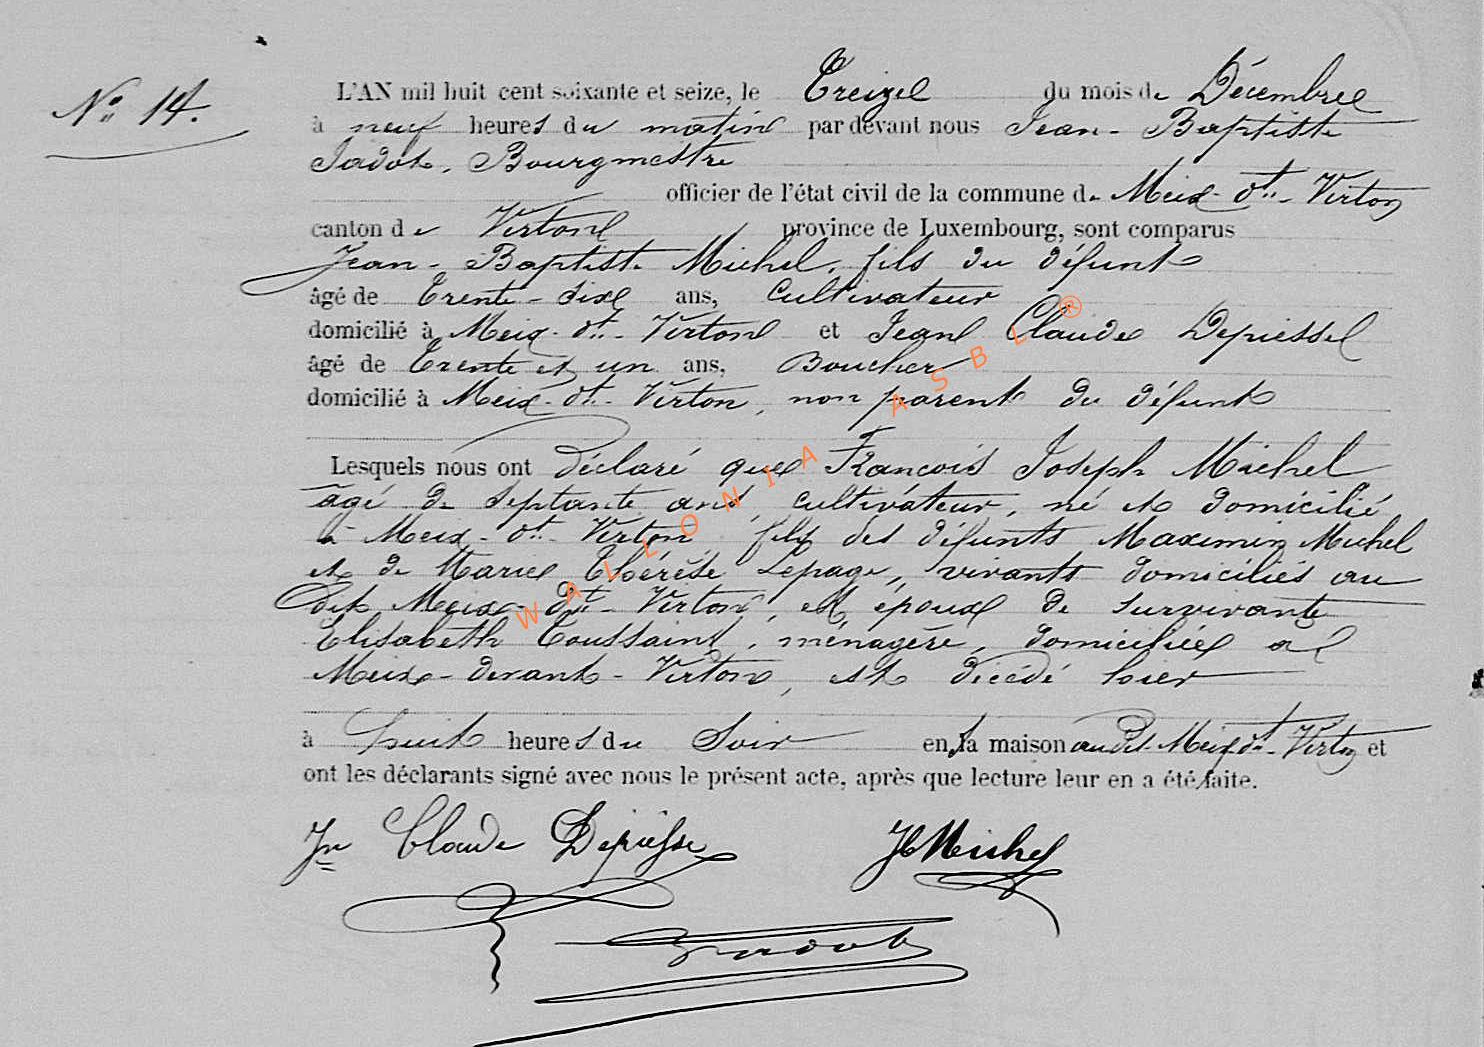 N° 14.
L'AN mil huit cent soixante et seize, le Treize du mois de Décembre
à neuf heures du matin par devant nous Jean-Baptiste
Jadot, Bourgmestre
officier de l'état civil de la commune de Meix-dt-Virton
canton de Virton province de Luxembourg, sont comparus
Jean-Baptiste Michel, fils du défunt
âgé de trente-six ans, Cultivateur
domicilié à Meix-dt-Virton et Jean Claude Depiesse
âgé de trente et un ans, Boucher
domicilié à Meix-dt-Virton, non parent du défunt
Lesquels nous ont déclaré que François Joseph Michel
âgé de septante ans, cultivateur, né et domicilié
à Meix-dt-Virton fils des défunts Maximin Michel
et de Marie Thérèse Lepage, vivants domiciliés au
dit Meix-dt-Virton, et époux de survivante
Elisabeth Toussaint, ménagère, domiciliée à
Meix-devant-Virton, est décédé hier
à huit heures du Soir en sa maison audit Meix-dt-Virton et
ont les déclarants signé avec nous le présent acte, après que lecture leur en a été faite.
Jn Claude Depiesse JB Michel
Jadot
WALLONIA ASBL ®